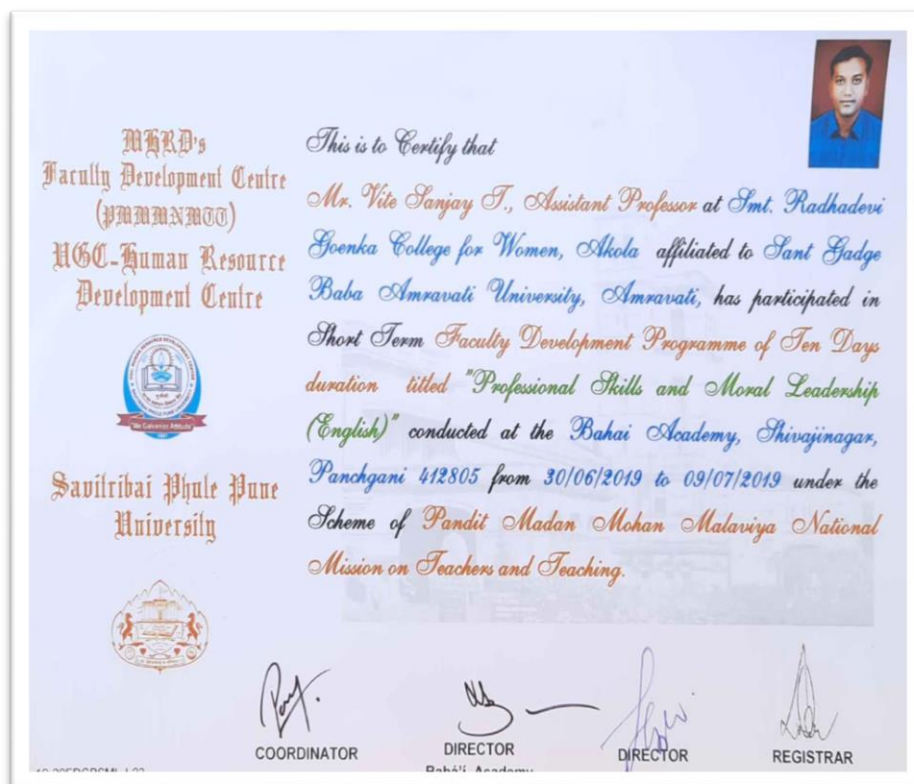 MHRD's
Faculty Development Centre
(PMMMNMTT)
UGC-Human Resource
Development Centre
"We Galvanize Attitude"
Savitribai Phule Pune
University
This is to Certify that
Mr. Vite Sanjay T., Assistant Professor at Smt. Radhadevi
Goenka College for Women, Akola affiliated to Sant Gadge
Baba Amravati University, Amravati, has participated in
Short Term Faculty Development Programme of Ten Days
duration titled "Professional Skills and Moral Leadership
(English)" conducted at the Bahai Academy, Shivajinagar,
Panchgani 412805 from 30/06/2019 to 09/07/2019 under the
Scheme of Pandit Madan Mohan Malaviya National
Mission on Teachers and Teaching.
COORDINATOR
DIRECTOR
Bahá'í Academy
DIRECTOR
REGISTRAR